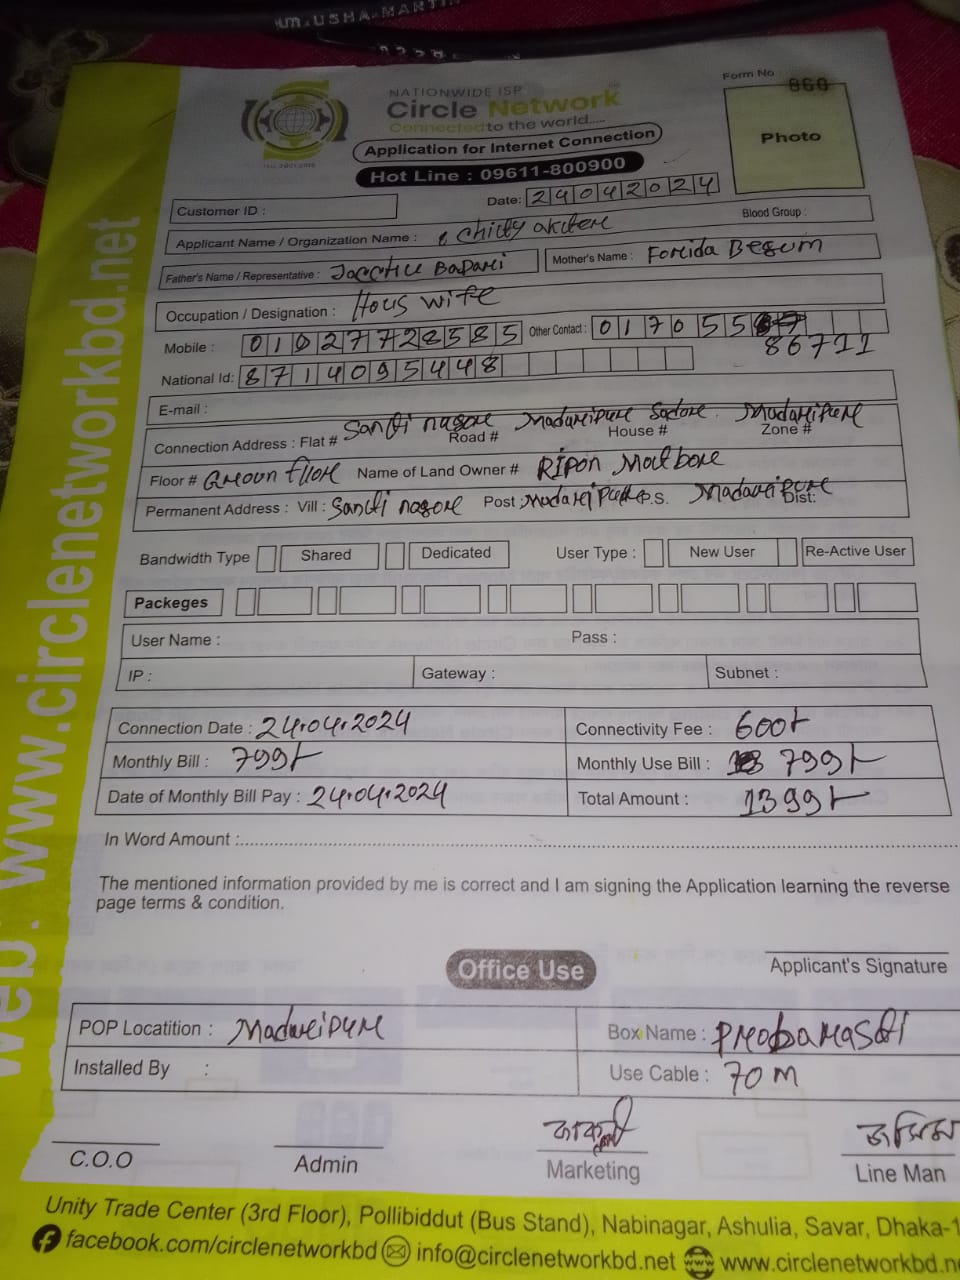 um.USHA-MARTI
NATIONWIDE ISP
Circle Network
Connected to the world.....
Application for Internet Connection
Hot Line : 09611-800900
Form No
060
Photo
Date: 24042024
Customer ID :
Applicant Name / Organization Name : Chitty akter
Blood Group :
Father's Name / Representative : Badari
Mother's Name : Forida Begum
Occupation / Designation : Hous wife
Mobile : 01027728585 Other Contact : 017055
86711
National Id: 8714095448
E-mail :
Santi nagore Madaripure Sadore. Madaripure
Connection Address : Flat # Road # House # Zone #
Floor # Groun fllore Name of Land Owner # Ripon Matbore
Permanent Address : Vill : Santi nagore Post : P.S. Madaripure Dist:
Bandwidth Type Shared Dedicated User Type : New User Re-Active User
Packeges
User Name : Pass :
IP : Gateway : Subnet :
Connection Date : 24.04.2024 Connectivity Fee : 600/-
Monthly Bill : 799/- Monthly Use Bill : 799/-
Date of Monthly Bill Pay : 24.04.2024 Total Amount : 1399/-
In Word Amount :
The mentioned information provided by me is correct and I am signing the Application learning the reverse
page terms & condition.
Applicant's Signature
Office Use
POP Locatition : Madaripure Box Name : Probarasti
Installed By : Use Cable : 70 m
জসিম
C.O.O Admin Marketing Line Man
Unity Trade Center (3rd Floor), Pollibiddut (Bus Stand), Nabinagar, Ashulia, Savar, Dhaka-1
facebook.com/circlenetworkbd info@circlenetworkbd.net www.circlenetworkbd.n
Web: www.circlenetworkbd.net